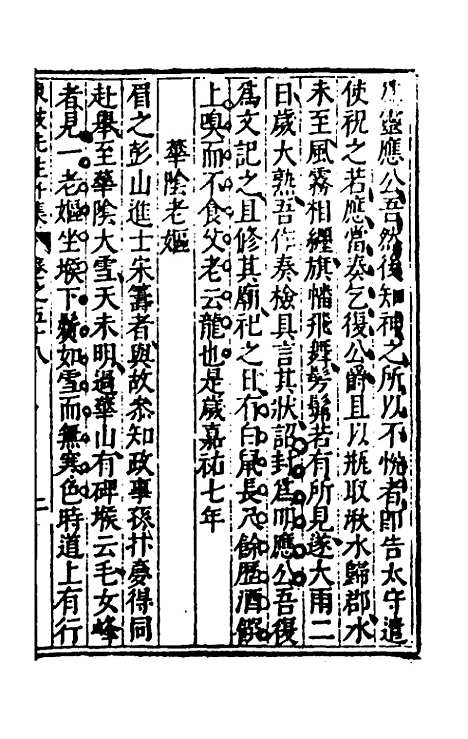 靈應公吾然後知神之所以不悅者即告太守遣
使祝之若應當奏乞復公爵且以瓶取湫水歸郡水
未至風霧相纏旗幡飛舞髣髴若有所見遂大雨二
日歲大熟吾作奏檢具言其狀詔封爲明應公吾復
爲文記之且修其廟祀之日有白鼠長尺餘歷酒饌
上嗅而不食父老云龍也是歲嘉祐七年
華陰老嫗
眉之彭山進士宋籌者與故叅知政事孫抃夢得同
赴舉至華陰大雪天未明過華山有碑堠云毛女峰
者見一老嫗坐堠下鬢如雪而無寒色時道上有行
東坡先生外集 卷之五十八 二